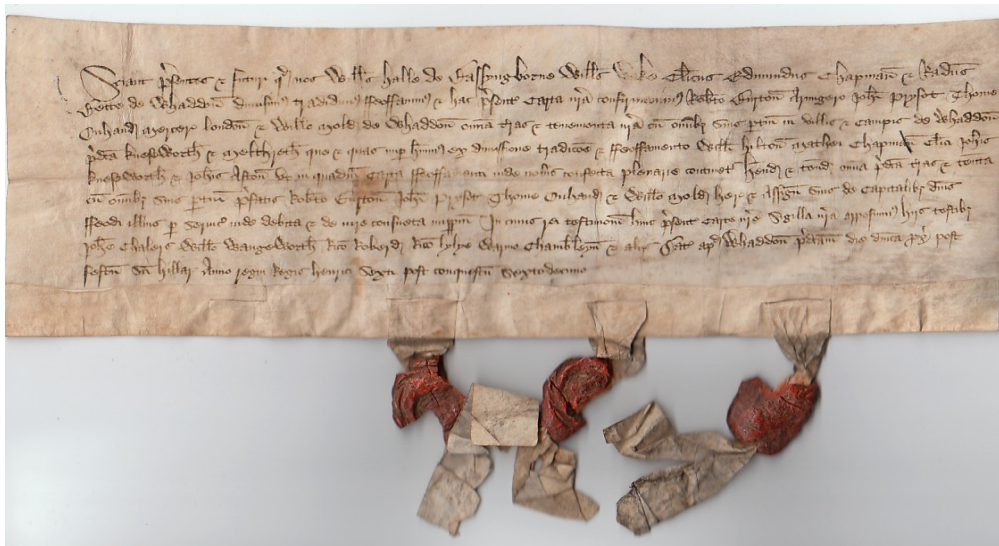 Sciant p'sentes & futuri qd nos Will's Halle de Bassyngborne Will's Cl'icus Edmundus Chapman & Radus
de Whaddon dimisim' tradidim' feoffavim' & hac p'senti Carta n'ra confirmavim' Rob'to Armigero Joh'i Prysot Thome
London & Will'o de Whaddon om'ia t'ras & tenementa n'ra cu' om'ib' suis p'tin' in villis & campis de Whaddon
p'd'ca Knesworth & Melreth que & quas nup' h'uim' ex dimissione tradic'oe & feoffamento Will'i Hilton Chapman Cl'ici Joh'is
Knesworth & Joh'is Aston ut in quadam Carta feoffamenti inde nobis confecta plenarie continet' H'end' & tenend' om'ia p'd'ca t'ras & ten'ta
cu' om'ib' suis p'tin' p'fatis Rob'to Joh'i Prysot Thome & Will'o her' & Assign' suis de Capitalib' d'nis
feodi illius p' servic' inde debita & de iure consueta imp'p'm In cuius rei testimoniu' huic p'senti Carte n're Sigilla n'ra apposuim' hijs testib'
Joh'e Will'o Ric'o Ric'o & alijs Dat' ap'd Whaddon p'd'cam die d'nica p'x' post
festu' S'ci Hillar' Anno regni Regis Henrici Sexti post conquestu' Sextodecimo